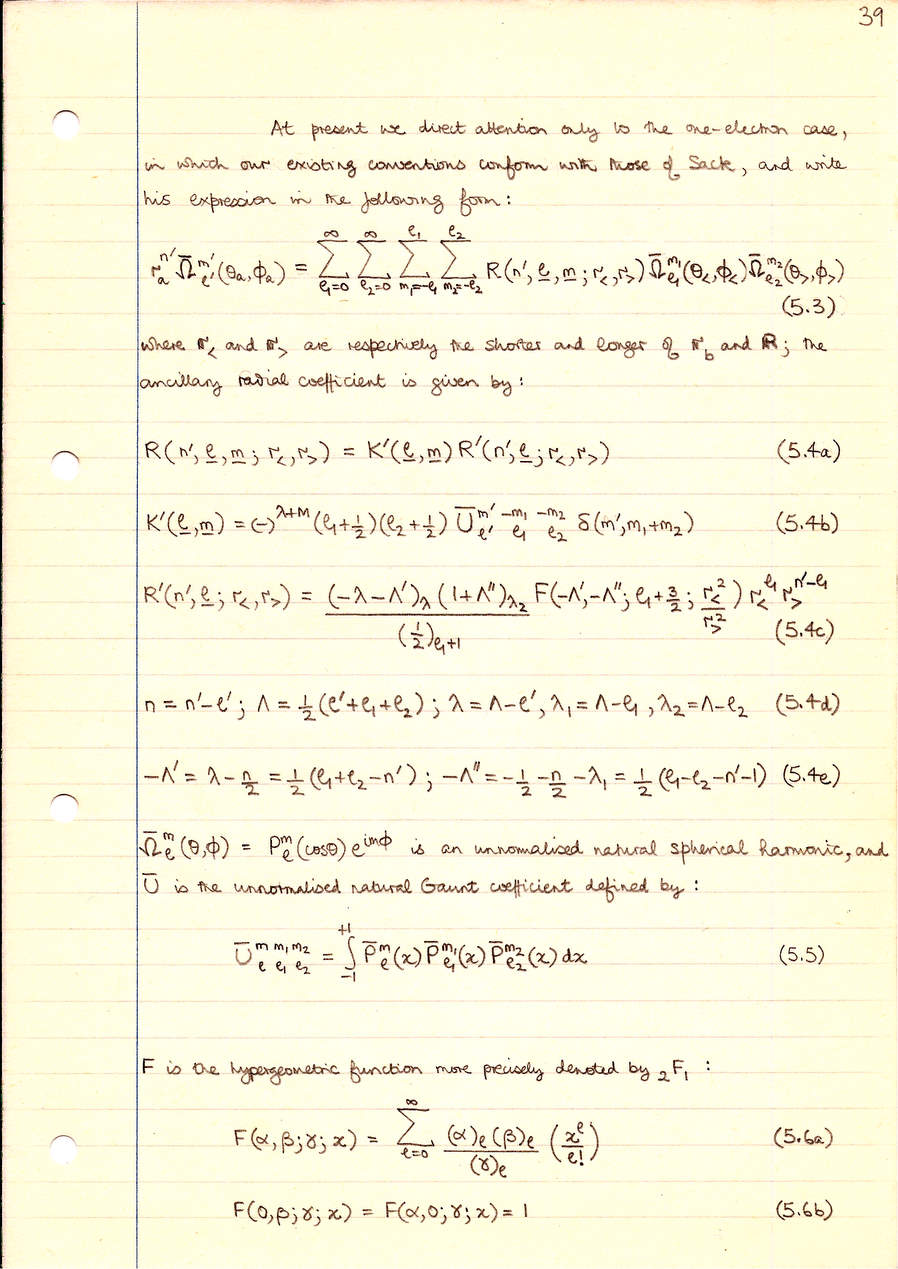 39
At present we direct attention only to the one-electron case,
in which our existing conventions conform with those of Sack, and write
his expression in the following form:
r_a^{n'} Ω̄_{ℓ'}^{m'}(θ_a,ϕ_a) = Σ_{ℓ₁=0}^{∞} Σ_{ℓ₂=0}^{∞} Σ_{m₁=-ℓ₁}^{ℓ₁} Σ_{m₂=-ℓ₂}^{ℓ₂} R(n',ℓ,m;r_<,r_>) Ω̄_{ℓ₁}^{m₁}(θ_<,ϕ_<) Ω̄_{ℓ₂}^{m₂}(θ_>,ϕ_>)
(5.3)
where r_< and r_> are respectively the shorter and longer of r_b and R; the
ancillary radial coefficient is given by:
R(n',ℓ,m;r_<,r_>) = K'(ℓ,m) R'(n',ℓ;r_<,r_>) (5.4a)
K'(ℓ,m) = (-)^{λ+M} (ℓ₁+½)(ℓ₂+½) Ū_{ℓ'}^{m'} _{ℓ₁}^{-m₁} _{ℓ₂}^{-m₂} δ(m',m₁+m₂) (5.4b)
R'(n',ℓ;r_<,r_>) = (-λ-Λ')_λ (1+Λ'')_{λ₂} / (½)_{ℓ₁+1} F(-Λ',-Λ'';ℓ₁+3/2; r_<²/r_>²) r_<^{ℓ₁} r_>^{n'-ℓ₁}
(5.4c)
n = n'-ℓ'; Λ = ½(ℓ'+ℓ₁+ℓ₂); λ = Λ-ℓ', λ₁ = Λ-ℓ₁, λ₂ = Λ-ℓ₂ (5.4d)
-Λ' = λ - n/2 = ½(ℓ₁+ℓ₂-n'); -Λ'' = -½ - n/2 - λ₁ = ½(ℓ₁-ℓ₂-n'-1) (5.4e)
Ω̄_ℓ^m(θ,ϕ) = P_ℓ^m(cosθ) e^{imϕ} is an unnomalised natural spherical harmonic, and
Ū is the unnormalised natural Gaunt coefficient defined by:
Ū_ℓ^m _{ℓ₁}^{m₁} _{ℓ₂}^{m₂} = ∫_{-1}^{+1} P̄_ℓ^m(x) P̄_{ℓ₁}^{m₁}(x) P̄_{ℓ₂}^{m₂}(x) dx (5.5)
F is the hypergeometric function more precisely denoted by ₂F₁ :
F(α,β;γ;x) = Σ_{ℓ=0}^{∞} (α)_ℓ (β)_ℓ / (γ)_ℓ (x^ℓ/ℓ!) (5.6a)
F(0,β;γ;x) = F(α,0;γ;x) = 1 (5.6b)